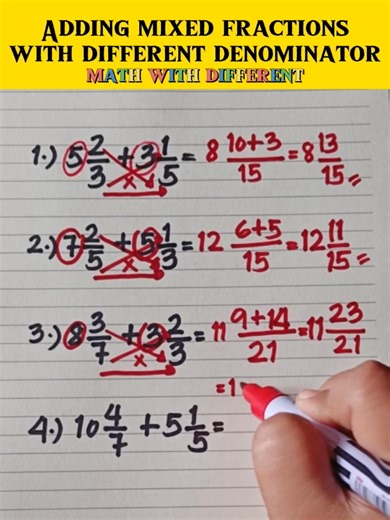 ADDING MIXED FRACTIONS
WITH DIFFERENT DENOMINATOR
MATH WITH DIFFERENT
1.) 5 2/3 + 3 1/5 = 8 10+3/15 = 8 13/15
2.) 7 2/5 + 5 1/3 = 12 6+5/15 = 12 11/15
3.) 8 3/7 + 3 2/3 = 11 9+14/21 = 11 23/21
= 1
4.) 10 4/7 + 5 1/5 =